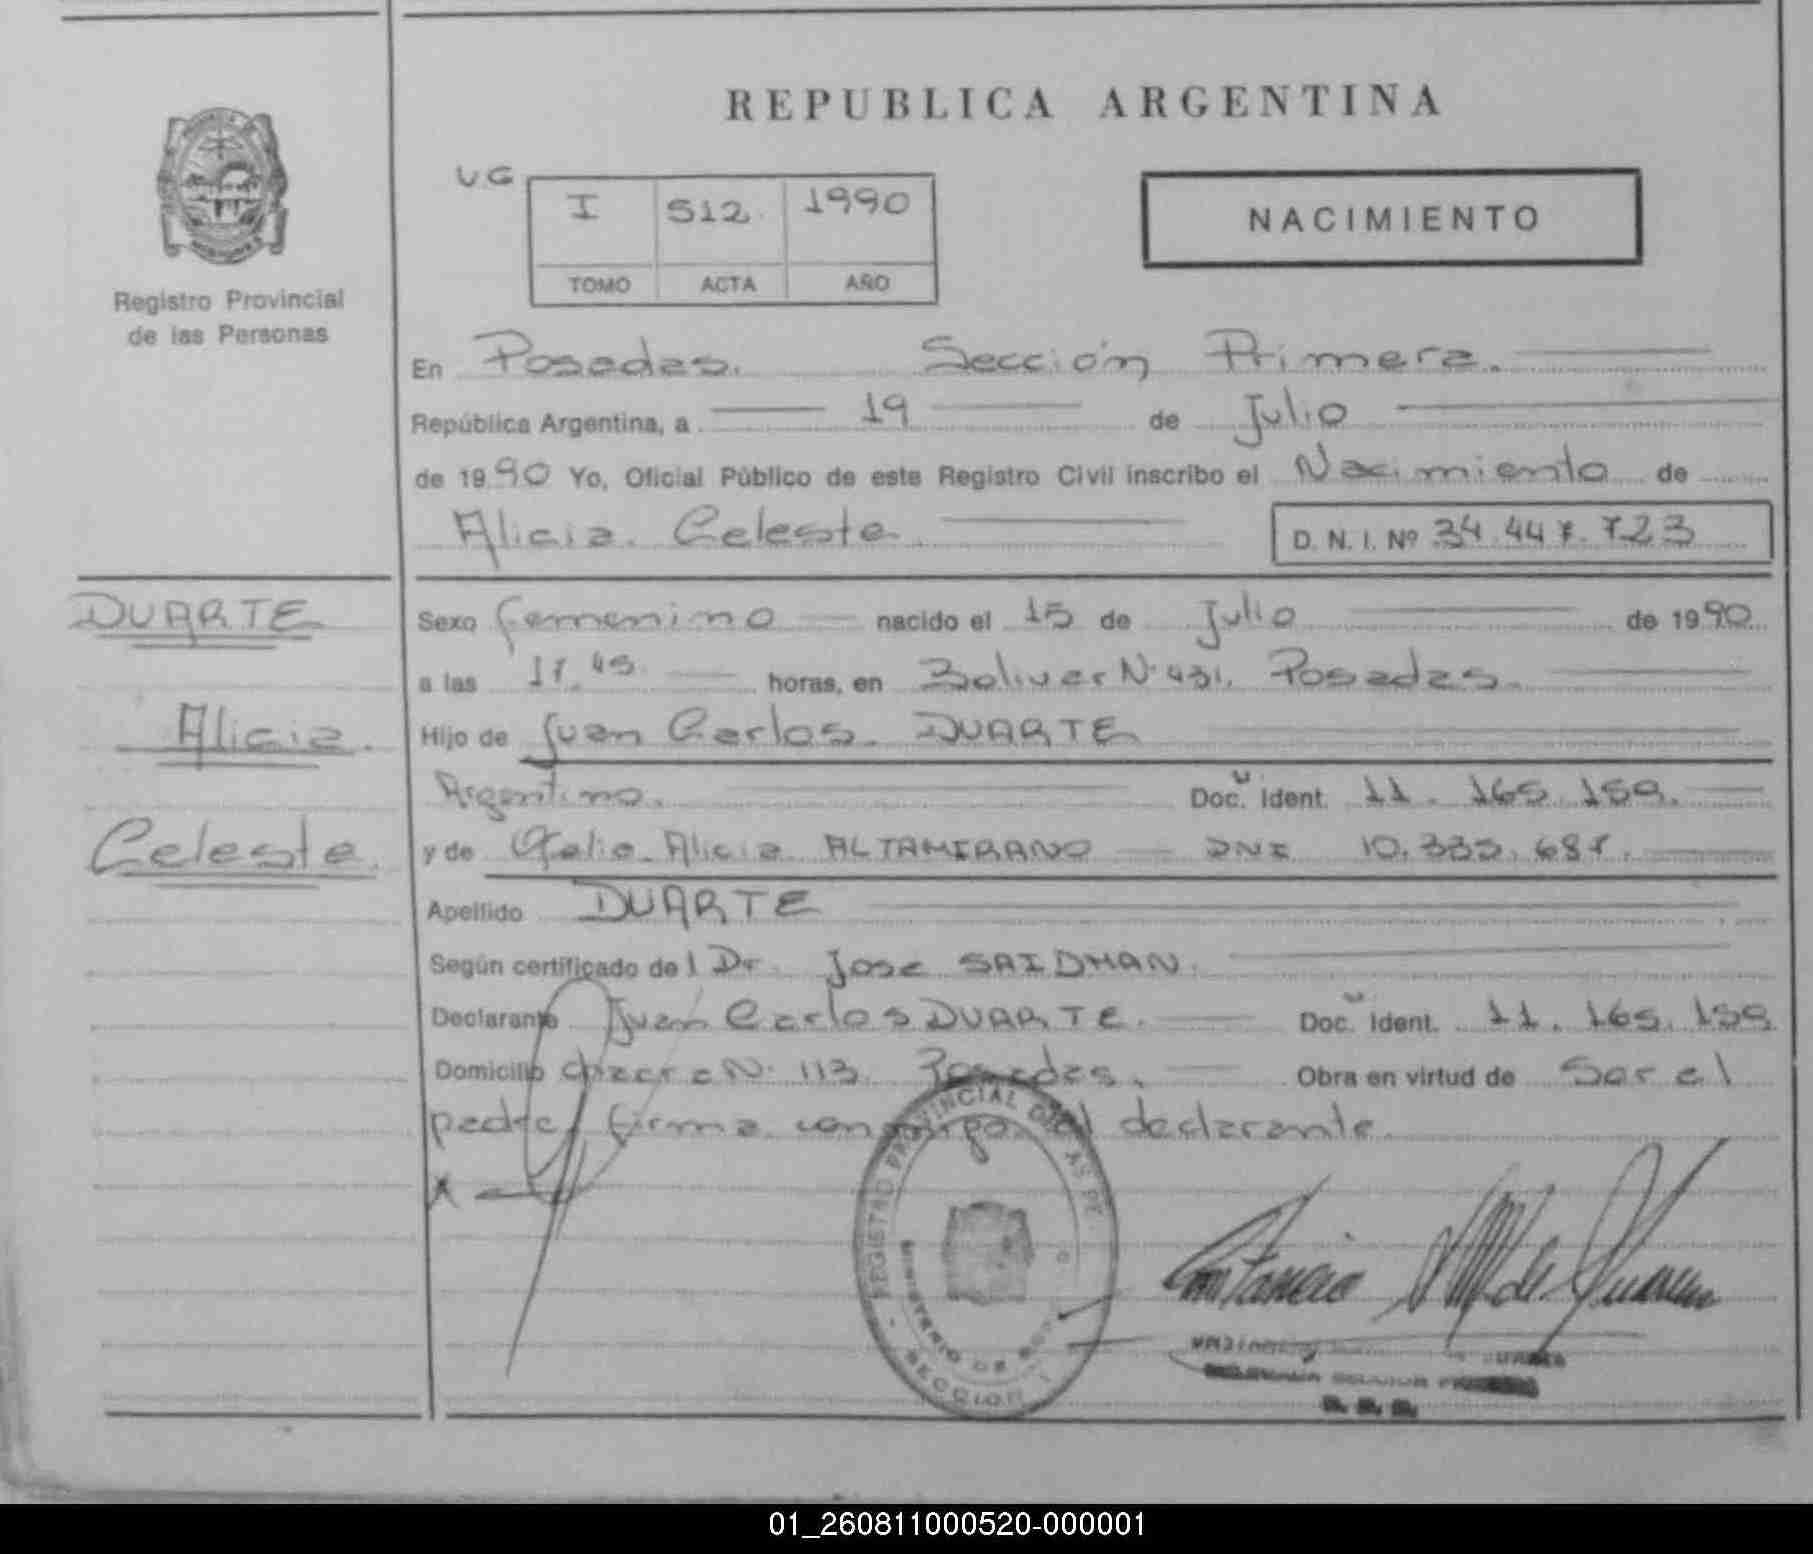 REPUBLICA ARGENTINA
UG
I 512 1990
TOMO ACTA AÑO
NACIMIENTO
Registro Provincial
de las Personas
En Posadas. Sección Primera.
República Argentina, a 19 de Julio
de 1990 Yo, Oficial Público de este Registro Civil inscribo el Nacimiento de
Alicia Celeste D. N. I. Nº 34.447.723
DUARTE
Alicia.
Celeste.
Sexo femenino nacido el 15 de Julio de 1990
a las 11.45 horas, en Bolivar Nº 431. Posadas.
Hijo de Juan Carlos DUARTE
Argentino. Doc. Ident. 11.165.159.
y de Alicia ALTAMIRANO DNI
Apellido DUARTE
Según certificado del Dr. Jose SAIDMAN.
Declarante Juan Carlos DUARTE. Doc. Ident. 11.165.159
Domicilio chacra Nº 113. Posadas. Obra en virtud de Ser el
padre, firma conmigo el declarante.
REGISTRO PROVINCIAL DE LAS PE
MINISTERIO DE
SECCION 1
01_260811000520-000001